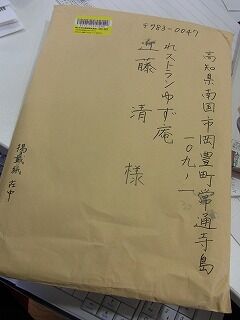 〒783-0047
高知県南国市岡豊町常通寺島
一〇九ー一
れストランゆず庵
近藤 清 様
掲載紙在中